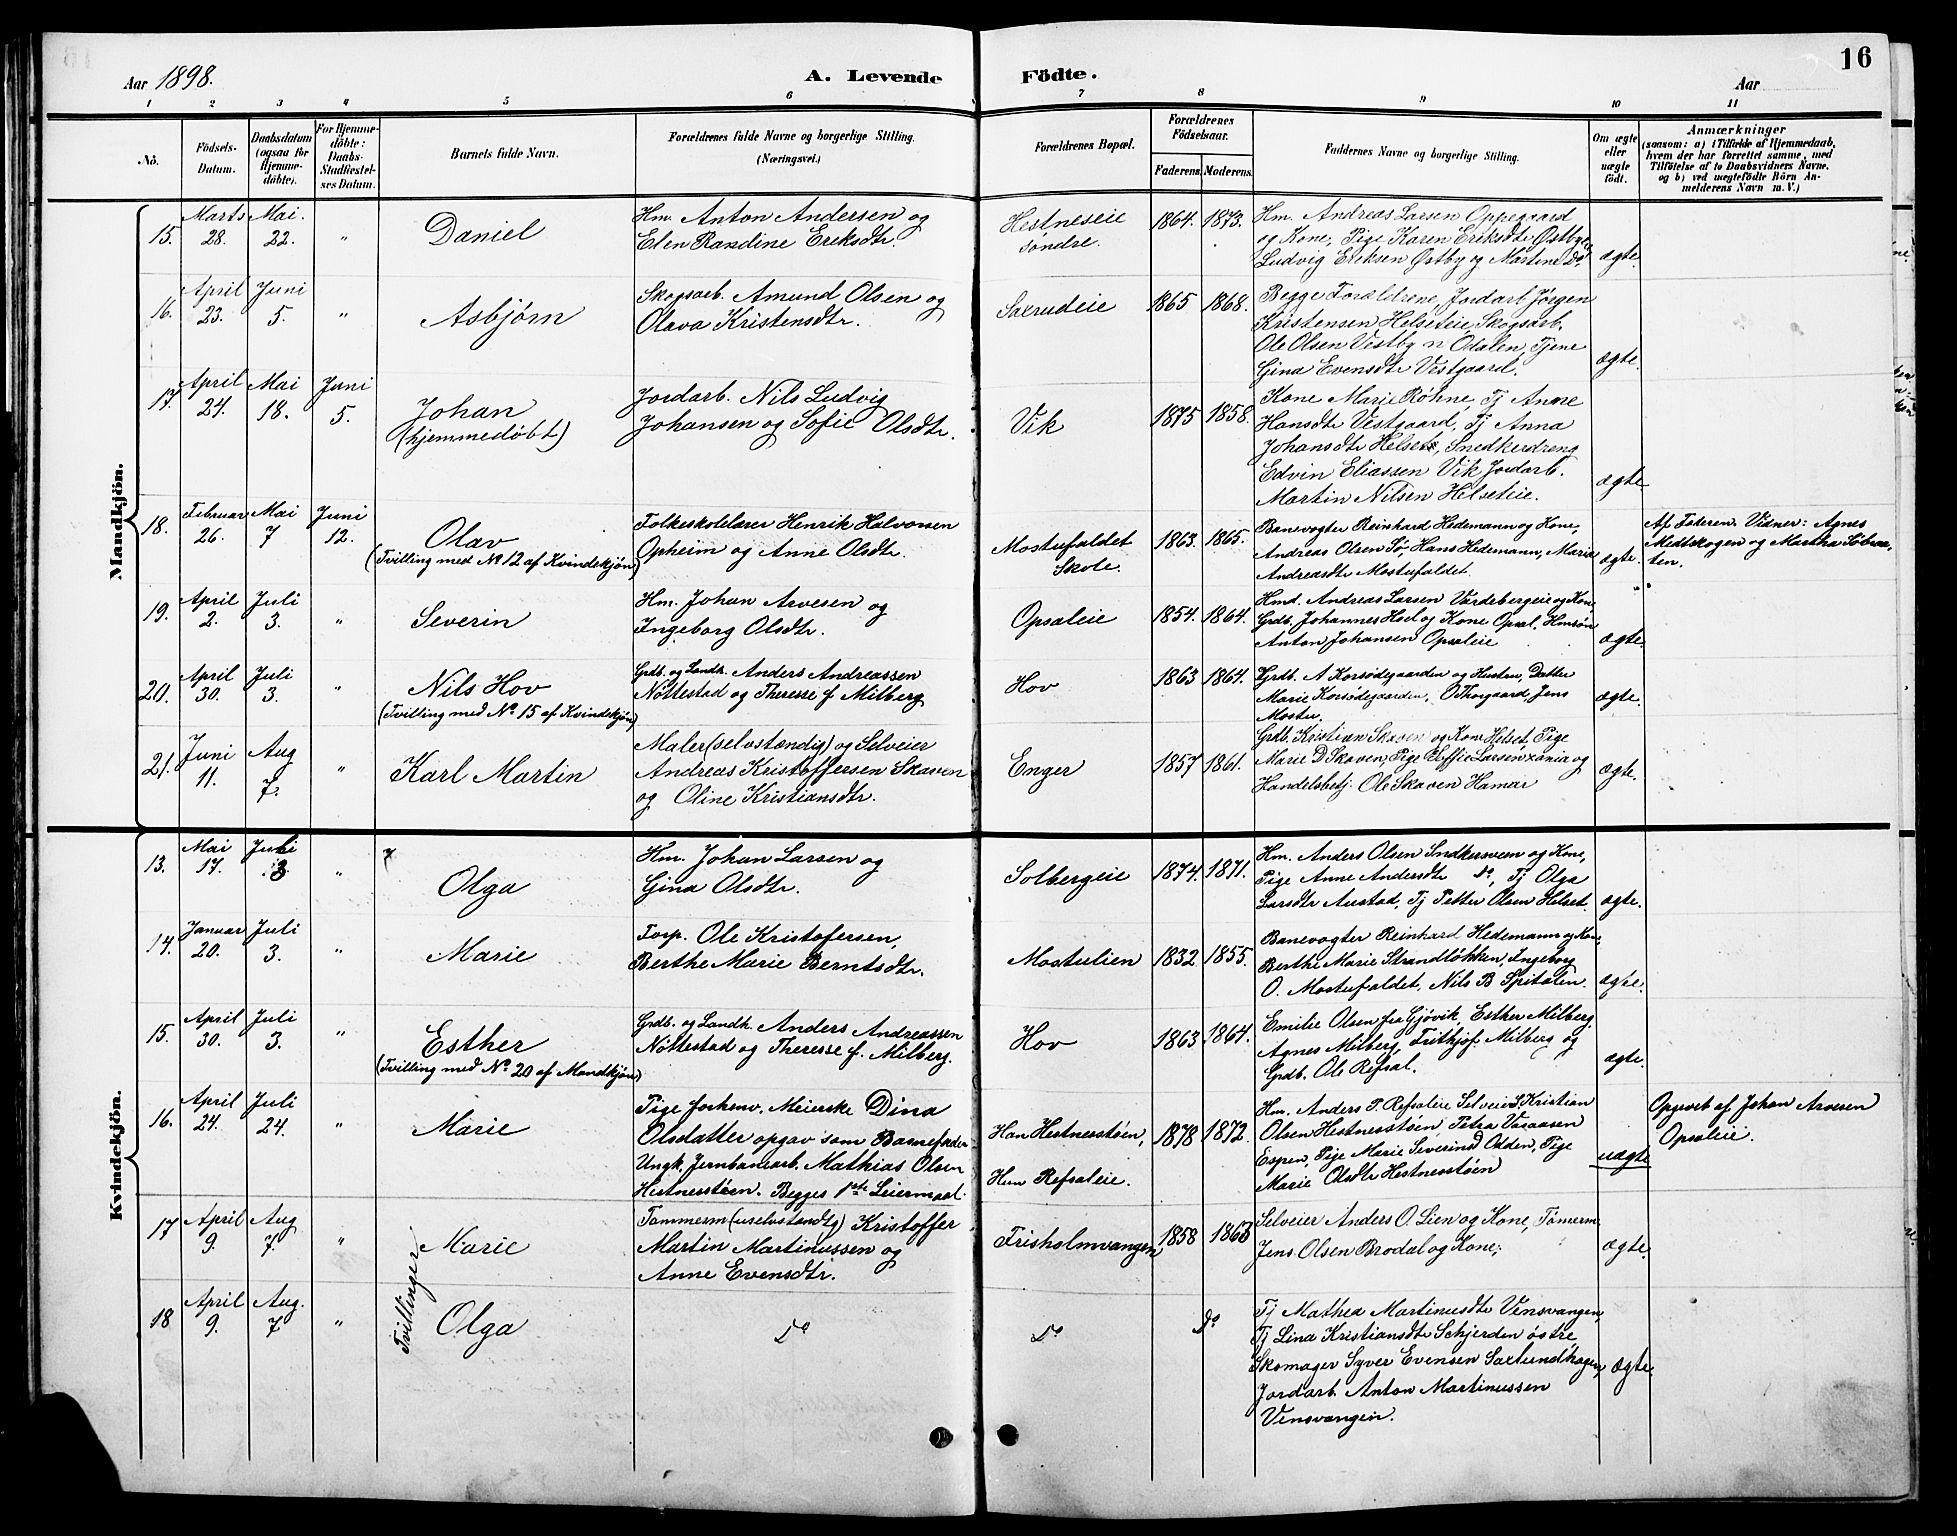 16
Aar 1898.
A. Levende Födte.
Aar
1 2 3 4 5 6 7 8 9 10 11
No.
Födsels-
Datum.
Daabsdatum
(ogsaa for
Hjemme-
döbte).
For Hjemme-
döbte:
Daabs-
Stadfæstel-
ses Datum.
Barnets fulde Navn.
Forældrenes fulde Navne og borgerlige Stilling.
(Næringsvei.)
Forældrenes Bopæl.
Forældrenes
Födselsaar.
Faderens. Moderens.
Faddernes Navne og borgerlige Stilling.
Om ægte
eller
uægte
födt.
Anmærkninger
(saasom: a) i Tilfælde af Hjemmedaab,
hvem der har forrettet samme, med
Tilföielse af to Daabsvidners Navne.
og b) ved uægtefödte Börn An-
melderens Navn m. V.)
Mandkjön.
15. Marts 28. Mai. 22. "
Daniel
Hm. Anton Andersen og
Elen Randine Eriksdtr.
Hestneseie
søndre.
1864. 1873.
Hm. Andreas Larsen Oppegaard
og Kone, Pige Karen Eriksdtr Østbye
Ludvig Eriksen Østby og Martine Do.
ægte.
16. April 23. Juni 5. "
Asbjørn
Skogsarb. Amund Olsen og
Olava Kristensdtr.
Saxrudeie
1865 1868.
Begge Forældrene, Jordarb Jørgen
Kristensen Helseteie, Skogsarb.
Ole Olsen Vestby n Odalen, Tjene
Gina Evensdtr Vestgaard.
ægte.
17. April 24. Mai 18. Juni 5.
Johan
(hjemmedøbt)
Jordarb. Nils Ludvig
Johansen og Sofie Olsdtr.
Vik
1875 1858.
Kone Marie Røhne, Tj Anne
Hansdtr Vestgaard, Tj Anna
Johansdtr Helset, Snedkerdreng
Edvin Eliassen Vik, Jordarb.
Martin Nilsen Helseteie.
ægte.
18. Februar 26. Mai 7 Juni 12.
Olav
(Tvilling med No 12 af Kvindekjøn)
Folkeskolelærer Henrik Halvorsen
Opheim og Anne Olsdtr.
Mostufaldet
Skole.
1863. 1865.
Banevogter Reinhard Hedemann og Kone,
Andreas Olsen Sø, Hans Hedemann, Maria
Andreasdtr Mostufaldet.
ægte.
Af Faderen. Vidner: Agnes
Medtskogen og Martha Søbraa-
ten.
19. April 2. Juli 3. "
Severin
Hm. Johan Arvesen og
Ingeborg Olsdtr.
Opsaleie
1854. 1864.
Hmd. Andreas Larsen Vardebergeie og Kone
Grdb. Johannes Hoel og Kone Opsal. Hmsøn
Anton Johansen Opsaleie
ægte.
20. April 30. Juli 3. "
Nils Hov
(Tvilling med No 15 af Kvindekjøn)
Grdb. og Landh. Anders Andreassen
Nøttestad og Therese f. Milberg
Hov
1863 1864.
Grdb. A Korsødegaarden og Hustru, Datter
Marie Korsødegaarden, O Thorgaard, Jens
Moster.
ægte.
21. Juni 11. Aug 7. "
Karl Martin
Maler (selvstændig) og Selveier
Andreas Kristoffersen Skaven
og Oline Kristiansdtr.
Enger
1857 1861.
Grdb. Kristian Skaven og Kone Helset, Pige
Marie D Skaven, Pige Soffie Larsen xania og
Handelsbetj. Ole Skaven Hamar
ægte.
Kvindekjön.
13. Mai 17. Juli 3. "
Olga
Hm. Johan Larsen og
Gina Olsdtr.
Solbergeie
1874. 1871.
Hm. Anders Olsen Sndkersveen og Kone,
Pige Anne Andersdtr Do, Tj Olga
Larsdtr Austad, Tj Petter Olsen Helset.
ægte.
14. Januar 20. Juli 3. "
Marie
Torp. Ole Kristofersen,
Berthe Marie Berntsdtr.
Mostulien
1832 1855.
Banevogter Reinhard Hedemann og Kone,
Berthe Marie Strandløkken, Ingeborg
O. Mostufaldet, Nils B Spitalen.
ægte.
15. April 30. Juli 3. "
Esther
(Tvilling med No 20 af Mandkjøn)
Grdb. og Landh. Anders Andreassen
Nøttestad og Therese f. Milberg.
Hov
1863 1864.
Emilie Olsen fra Gjøvik, Esther Milberg,
Agnes Milberg, Frithjof Milberg og
Grdb. Ole Refsal.
ægte.
16. April 24. Juli 24. "
Marie
Pige forhenv. Meierske Dina
Olsdatter opgav som Barnefader
Ungk. Jernbanearb. Mathias Olsen
Hestnesstøen. Begges 1ste Leiermaal.
Han Hestnesstøen,
Hun Refsaleie.
1878 1872.
Hm. Anders P. Refsaleie Selveier Kristian
Olsen Hestnesstøen, Petra Vaaasen
Espen, Pige Marie Severinsd Odden, Pige
Marie Olsdtr Hestnesstøen
uægte
Opgivet af Johan Arvesen
Opsaleie.
17 April 9. Aug 7. "
Tvillinger
Marie
Tømmerm (uselvstændg) Kristoffer
Martin Martinussen og
Anne Evensdtr.
Frisholmvangen
1858 1863
Selveier Anders O. Lien og Kone, Tømerm
Jens Olsen Brodal og Kone,
ægte.
18 April 9. Aug. 7 "
Olga
Do
Do
Do
Tj Mathea Martinusdtr Vensvangen,
Tj Lina Kristiansdtr Schjerden østre
Skomager Syver Evensen Saxlundhagen,
Jordarb Anton Martinussen
Vensvangen.
ægte.